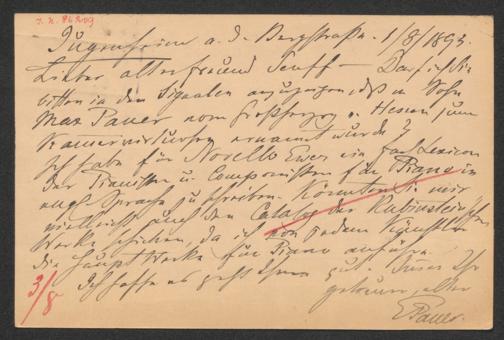 J. N. 86209
Jugenheim a. d. Bergstraße. 1/8/1893.
Lieber alter Freund Senff — Darf ich Sie
bitten in den Signalen anzuzeigen, daß m Sohn
Max Pauer vom Großherzog v. Hessen zum
Kammervirtuosen ernannt wurde?
Ich habe für Novello Ewer ein Lexicon
der Pianisten u. Componisten für Piano in
engl. Sprache zu schreiben. Könnten Sie mir
vielleicht auch den Catalog der Rubinstein'schen
Werke schicken, da ich von jedem Künstler
die Hauptwerke für Piano anführe.
Ich hoffe es geht Ihnen gut. Immer Ihr
getreuer, alter
E Pauer.
3/8